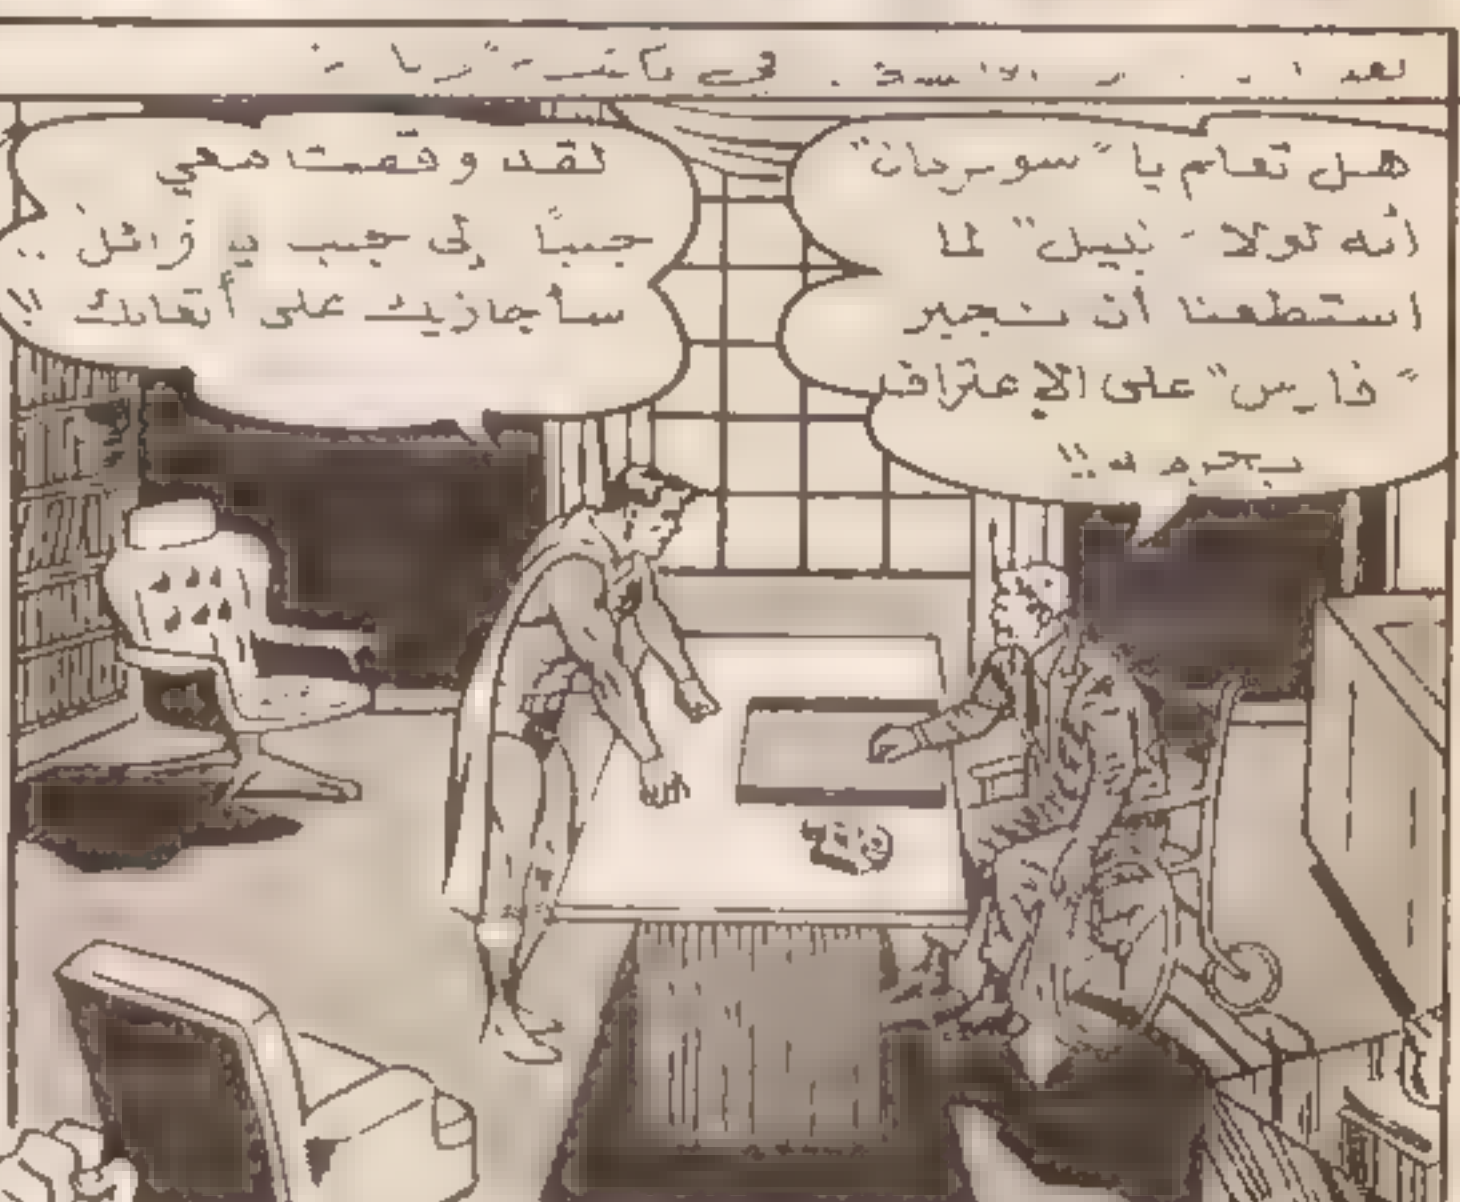 لقد
في
هل تعلم يا "سوبرمان"
أنه لولا "نبيل" لما
استطعنا أن نجبر
"فارس" على الإعتراف
بجرمه !!
لقد وقفت معي
جنباً إلى جنب يا زائل ..
سأجازيك على أتعابك !!